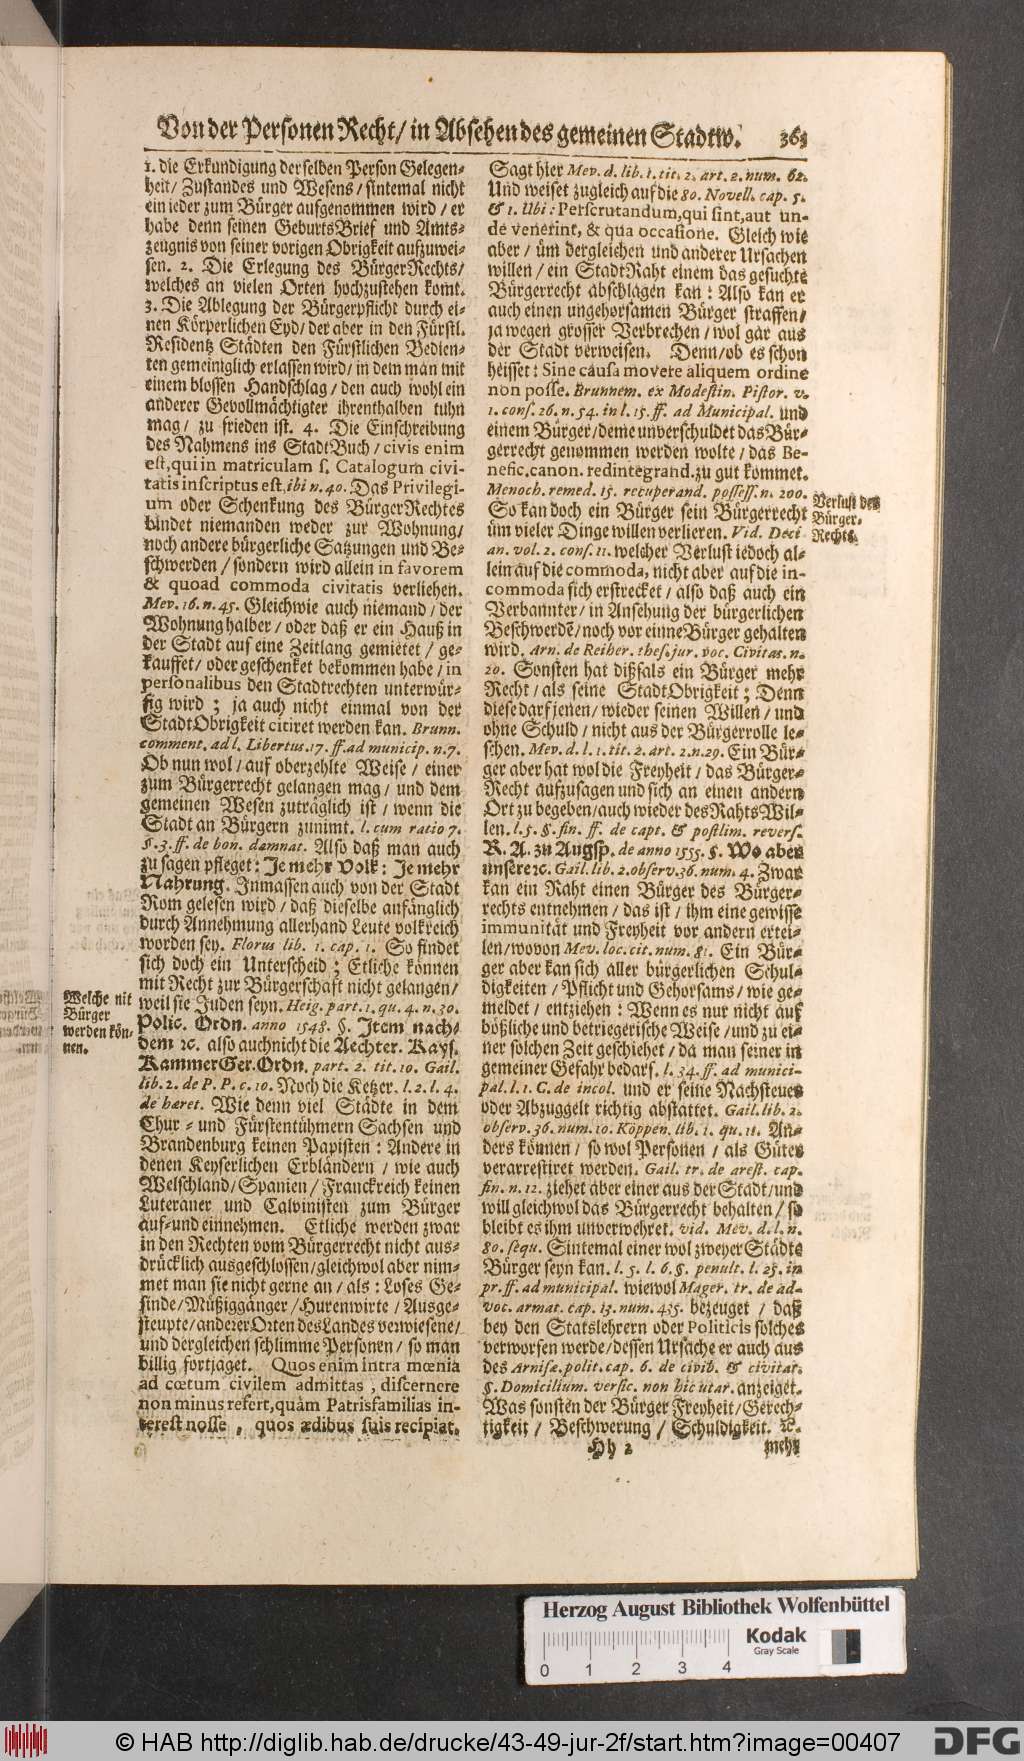 Von der Personen Recht/ in Absehen des gemeinen Stadtw. 363
1. die Erkundigung derselben Person Gelegen-
heit/ Zustandes und Wesens/ sintemal nicht
ein ieder zum Bürger aufgenommen wird/ er
habe denn seinen GeburtsBrief und Amts-
zeugnis von seiner vorigen Obrigkeit aufzuwei-
sen. 2. Die Erlegung des BürgerRechts/
welches an vielen Orten hochzustehen komt.
3. Die Ablegung der Bürgerpflicht durch ei-
nen Körperlichen Eyd/ der aber in den Fürstl.
Residentz Städten den Fürstlichen Bedien-
ten gemeiniglich erlassen wird/ in dem man mit
einem blossen Handschlag/ den auch wohl ein
anderer Gevollmächtigter ihrenthalben tuhn
mag/ zu frieden ist. 4. Die Einschreibung
des Nahmens ins StadtBuch/ civis enim
est, qui in matriculam s. Catalogum civi-
tatis inscriptus est, ibi n. 40. Das Privilegi-
um oder Schenkung des BürgerRechtes
bindet niemanden weder zur Wohnung/
noch andere bürgerliche Satzungen und Be-
schwerden/ sondern wird allein in favorem
& quoad commoda civitatis verliehen.
Mev. 16. n. 45. Gleichwie auch niemand/ der
Wohnung halber/ oder daß er ein Hauß in
der Stadt auf eine Zeitlang gemietet/ ge-
kauffet/ oder geschenket bekommen habe/ in
personalibus den Stadtrechten unterwür-
fig wird; ja auch nicht einmal von der
StadtObrigkeit citiret werden kan. Brunn.
comment. ad l. Libertus. 17. ff. ad municip. n. 7.
Ob nun wol/ auf oberzehlte Weise/ einer
zum Bürgerrecht gelangen mag/ und dem
gemeinen Wesen zuträglich ist/ wenn die
Stadt an Bürgern zunimt. l. cum ratio 7.
§. 3. ff. de bon. damnat. Also daß man auch
zu sagen pfleget: Je mehr Volk: Je mehr
Nahrung. Inmassen auch von der Stadt
Rom gelesen wird/ daß dieselbe anfänglich
durch Annehmung allerhand Leute volkreich
worden sey. Florus lib. 1. cap. 1. So findet
sich doch ein Unterscheid; Etliche können
mit Recht zur Bürgerschaft nicht gelangen/
Welche nit
Bürger
werden kön-
nen.
weil sie Juden seyn. Heig. part. 1. qu. 4. n. 30.
Polic. Ordn. anno 1548. §. Item nach-
dem ꝛc. also auch nicht die Aechter. Kays.
KammerGer. Ordn. part. 2. tit. 10. Gail.
lib. 2. de P. P. c. 10. Noch die Ketzer. l. 2. l. 4.
de hæret. Wie denn viel Städte in dem
Chur- und Fürstentühmern Sachsen und
Brandenburg keinen Papisten: Andere in
denen Keyserlichen Erbländern/ wie auch
Welschland/ Spanien/ Franckreich keinen
Luteraner und Calvinisten zum Bürger
auf- und einnehmen. Etliche werden zwar
in den Rechten vom Bürgerrecht nicht aus-
drücklich ausgeschlossen/ gleichwol aber nim-
met man sie nicht gerne an/ als: Loses Ge-
sinde/ Müßiggänger/ Hurenwirte/ Ausge-
steupte/ anderer Orten des Landes verwiesene/
und dergleichen schlimme Personen/ so man
billig fortjaget. Quos enim intra mœnia
ad cœtum civilem admittas, discernere
non minus refert, quàm Patrisfamilias in-
terest nosse, quos ædibus suis recipiat.
Sagt hier Mev. d. lib. 1. tit. 2. art. 2. num. 62.
Und weiset zugleich auf die 80. Novell. cap. 5.
& 1. Ubi: Perscrutandum, qui sint, aut un-
de venerint, & qua occasione. Gleich wie
aber/ üm dergleichen und anderer Ursachen
willen/ ein StadtRaht einem das gesuchte
Bürgerrecht abschlagen kan: Also kan er
auch einen ungehorsamen Bürger straffen/
ja wegen grosser Verbrechen/ wol gar aus
der Stadt verweisen. Denn/ ob es schon
heisset: Sine causa movere aliquem ordine
non posse. Brunnem. ex Modestin. Pistor. v.
1. cons. 26. n. 54. in l. 15. ff. ad Municipal. und
einem Bürger/ deme unverschuldet das Bür-
gerrecht genommen werden wolte/ das Be-
nefic. canon. redintegrand. zu gut kommet.
Menoch. remed. 15. recuperand. possess. n. 200.
Verlust des
Bürger-
Rechts.
So kan doch ein Bürger sein Bürgerrecht
üm vieler Dinge willen verlieren. Vid. Deci
an. vol. 2. cons. 11. welcher Verlust iedoch al-
lein auf die commoda, nicht aber auf die in-
commoda sich erstrecket/ also daß auch ein
Verbannter/ in Ansehung der bürgerlichen
Beschwerdē/ noch vor einne Bürger gehalten
wird. Arn. de Reiher. thes. jur. voc. Civitas. n.
20. Sonsten hat dißfals ein Bürger mehr
Recht/ als seine StadtObrigkeit; Denn
diese darf jenen/ wieder seinen Willen/ und
ohne Schuld/ nicht aus der Bürgerrolle le-
schen. Mev. d. l. 1. tit. 2. art. 2. n. 29. Ein Bür-
ger aber hat wol die Freyheit/ das Bürger-
Recht aufzusagen und sich an einen andern
Ort zu begeben/ auch wieder des Rahts Wil-
len. l. 5. §. fin. ff. de capt. & postlim. revers.
R. A. zu Augsp. de anno 1555. §. Wo aber
unsere ꝛc. Gail. lib. 2. observ. 36. num. 4. Zwar
kan ein Raht einen Bürger des Bürger-
rechts entnehmen/ das ist/ ihm eine gewisse
immunität und Freyheit vor andern ertei-
len/ wovon Mev. loc. cit. num. 81. Ein Bür-
ger aber kan sich aller bürgerlichen Schul-
digkeiten/ Pflicht und Gehorsams/ wie ge-
meldet/ entziehen: Wenn es nur nicht auf
bößliche und betriegerische Weise/ und zu ei-
ner solchen Zeit geschiehet/ da man seiner in
gemeiner Gefahr bedarf. l. 34. ff. ad munici-
pal. l. 1. C. de incol. und er seine Nachsteuer
oder Abzuggelt richtig abstattet. Gail. lib. 2.
observ. 36. num. 10. Köppen. lib. 1. qu. 11. An-
ders können/ so wol Personen/ als Güter
verarrestiret werden. Gail. tr. de arest. cap.
fin. n. 12. ziehet aber einer aus der Stadt/ und
will gleichwol das Bürgerrecht behalten/ so
bleibt es ihm unverwehret. vid. Mev. d. l. n.
80. sequ. Sintemal einer wol zweyer Städte
Bürger seyn kan. l. 5. l. 6. §. penult. l. 25. in
pr. ff. ad municipal. wiewol Mager. tr. de ad-
voc. armat. cap. 13. num. 435. bezeuget/ daß
bey den Statslehrern oder Politicis solches
verworfen werde/ dessen Ursache er auch aus
des Arnisæ. polit. cap. 6. de civib. & civitat.
§. Domicilium. versic. non hic utar. anzeiget.
Was sonsten der Bürger Freyheit/ Gerech-
tigkeit/ Beschwerung/ Schuldigkeit. ꝛc.
Hh 2 mehr
Herzog August Bibliothek Wolfenbüttel
Kodak
Gray Scale
0 1 2 3 4
© HAB http://diglib.hab.de/drucke/43-49-jur-2f/start.htm?image=00407
DFG